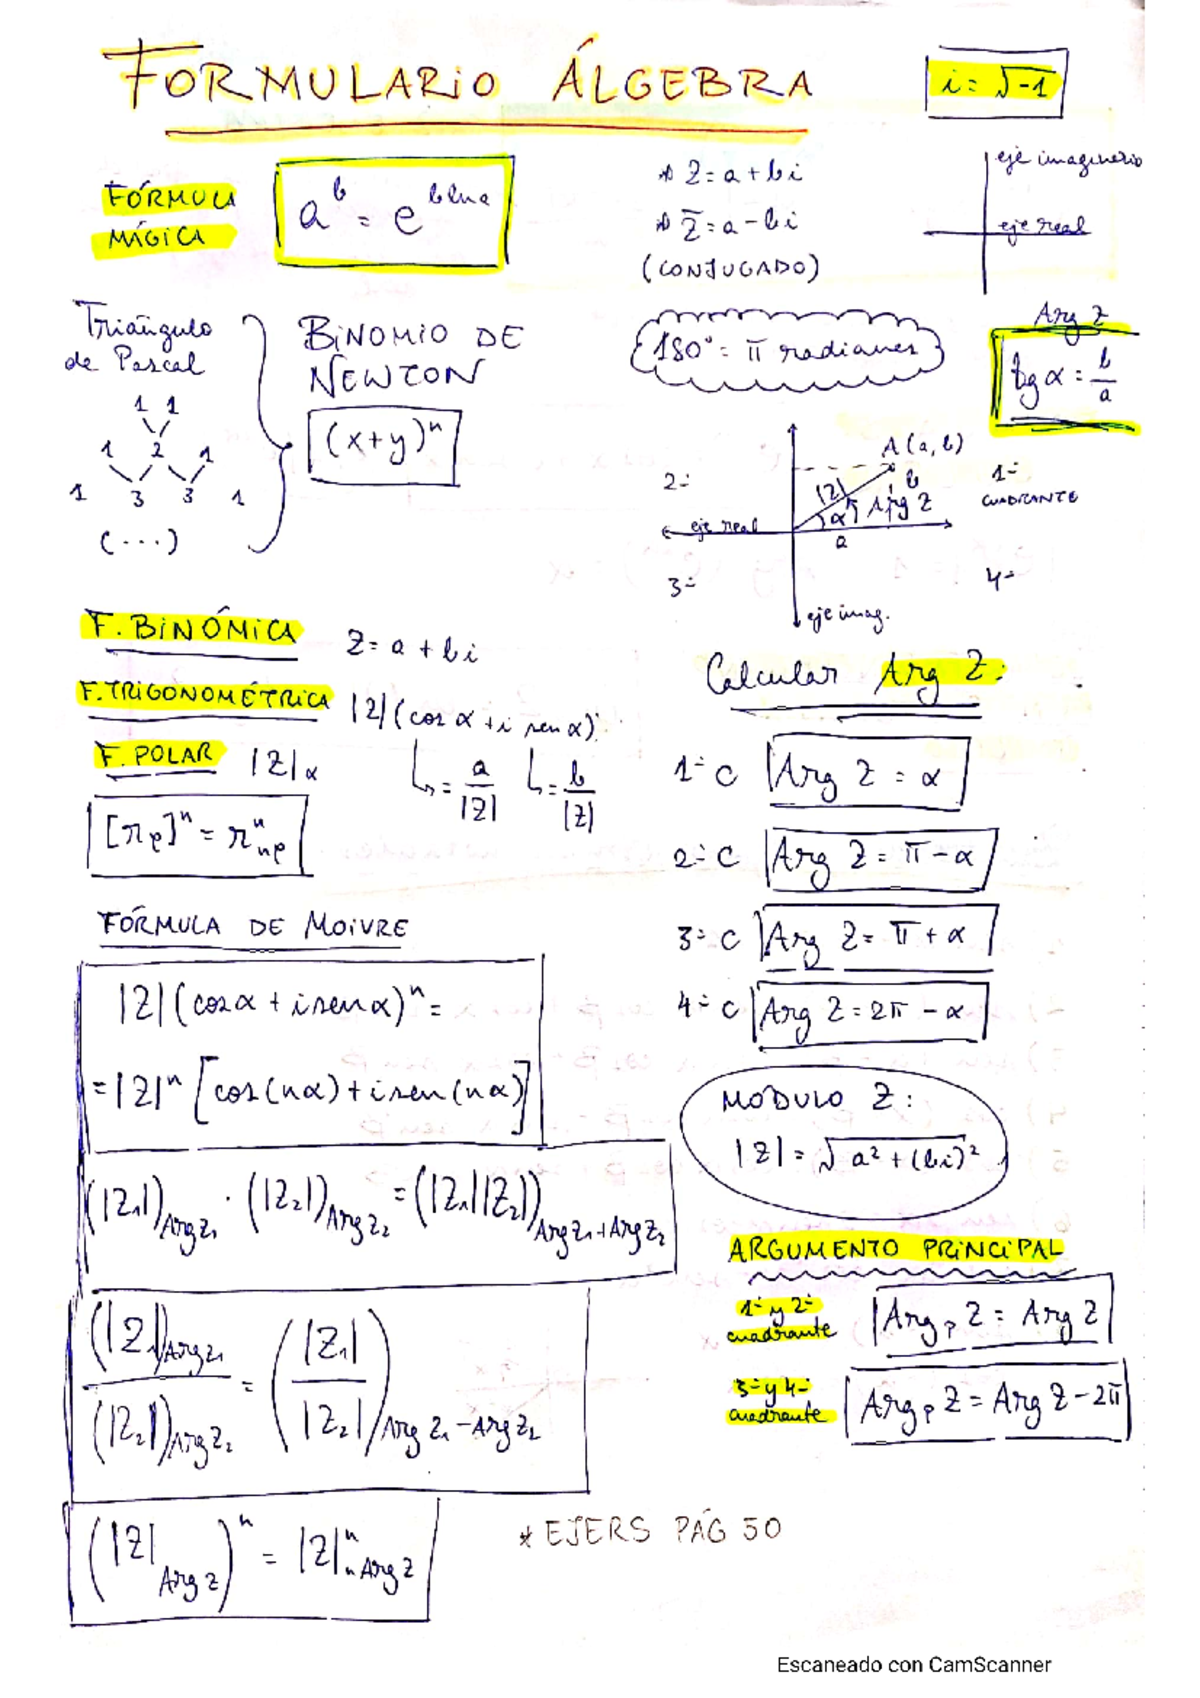 FORMULARIO ÁLGEBRA
i = √-1
FÓRMULA
MÁGICA
a^b = e^(b ln a)
* Z = a + bi
* Z̅ = a - bi
(CONJUGADO)
eje imaginario
eje real
Triángulo
de Pascal
1 1
1 2 1
1 3 3 1
(...)
BINOMIO DE
NEWTON
(x+y)^n
180° = π radianes
Arg Z
tg α = b/a
A(a, b)
2º
1º
CUADRANTE
|Z|
b
α
Arg Z
eje real
a
3º
4º
eje imag.
F. BINÓMICA
Z = a + bi
F. TRIGONOMÉTRICA
|Z| (cos α + i sen α)
↳ = a/|Z| ↳ = b/|Z|
F. POLAR
|Z|α
[r_φ]^n = r^n_nφ
Calcular Arg Z:
1º C Arg Z = α
2º C Arg Z = π - α
3º C Arg Z = π + α
4º C Arg Z = 2π - α
FÓRMULA DE MOIVRE
|Z| (cos α + i sen α)^n =
= |Z|^n [cos(nα) + i sen(nα)]
MÓDULO Z:
|Z| = √a² + (bi)²
(|Z₁|)_Arg Z₁ · (|Z₂|)_Arg Z₂ = (|Z₁||Z₂|)_Arg Z₁ + Arg Z₂
ARGUMENTO PRINCIPAL
1º y 2º
cuadrante
Arg_p Z = Arg Z
3º y 4º
cuadrante
Arg_p Z = Arg Z - 2π
(|Z₁|)_Arg Z₁ / (|Z₂|)_Arg Z₂ = (|Z₁| / |Z₂|)_Arg Z₁ - Arg Z₂
(|Z|_Arg Z)^n = |Z|^n_n Arg Z
* EJERS PÁG 50
Escaneado con CamScanner